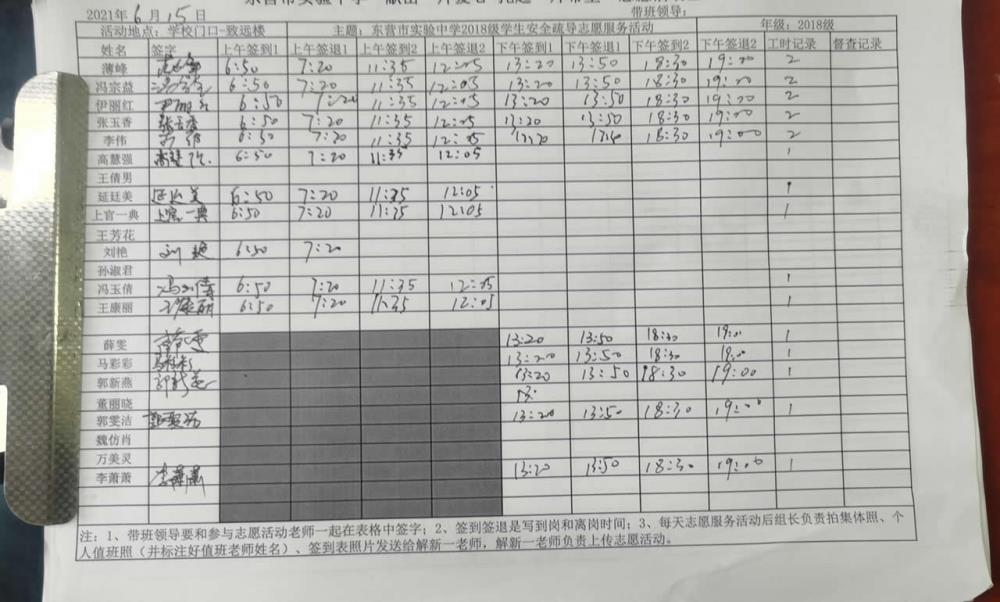 2021年6月15日 带班领导:
活动地点: 学校门口-致远楼 主题: 东营市实验中学2018级学生安全疏导志愿服务活动 年级: 2018级
姓名 签字 上午签到1 上午签退1 上午签到2 上午签退2 下午签到1 下午签退1 下午签到2 下午签退2 工时记录 督查记录
薄峰 6:50 7:20 11:35 12:05 13:20 13:50 18:30 19:00 2
冯宗益 6:50 7:20 11:35 12:05 13:20 13:50 18:30 19:00 2
伊丽红 6:50 7:20 11:35 12:05 13:20 13:50 18:30 19:00 2
张玉香 张玉香 6:50 7:20 11:35 12:05 13:20 13:50 18:30 19:00 2
李伟 6:50 7:20 11:35 12:05 18:30 19:00 2
高慧强 6:50 7:20 11:35 12:05 1
王倩男
延廷美 延廷美 6:50 7:20 11:35 12:05 1
上官一典 上官一典 6:50 7:20 11:35 12:05 1
王芳花
刘艳 刘艳 6:50 7:20
孙淑君
冯玉倩 冯玉倩 6:50 7:20 11:35 12:05 1
王康丽 王康丽 6:50 7:20 11:35 12:05 1
薛雯 13:20 13:50 18:30 19:00 1
马彩彩 13:20 13:50 18:30 19:00 1
郭新燕 郭新燕 13:20 13:50 18:30 19:00 1
董丽晓 13:
郭雯洁 13:20 13:50 18:30 19:00 1
魏仿肖
万美灵
李萧萧 李萧萧 13:20 13:50 18:30 19:00 1
注: 1、带班领导要和参与志愿活动老师一起在表格中签字; 2、签到签退是写到岗和离岗时间; 3、每天志愿服务活动后组长负责拍集体照、个
人值班照（并标注好值班老师姓名）、签到表照片发送给解新一老师，解新一老师负责上传志愿活动。